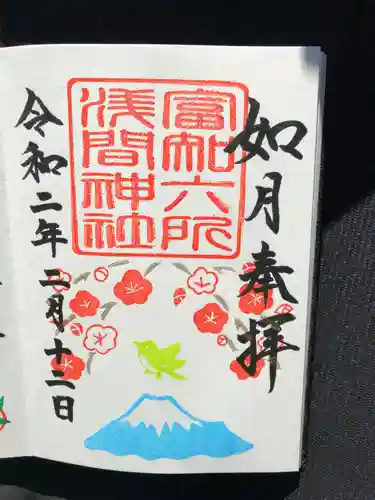 如月奉拝
富知六所
浅間神社
令和二年二月十二日